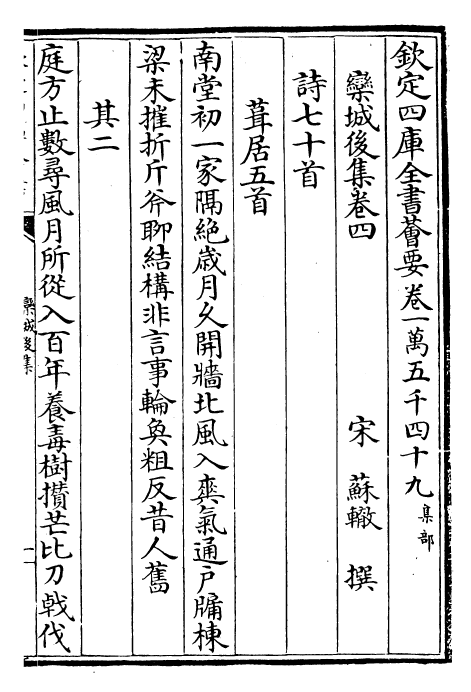 欽定四庫全書薈要卷一萬五千四十九集部
欒城後集卷四　宋　蘇轍　撰
詩七十首
葺居五首
南堂初一家隔絶歳月久開牆北風入爽氣通戸牖棟
梁未摧折斤斧聊結構非言事輪奐粗反昔人舊
其二
庭方止數尋風月所從入百年養毒樹攢芒比刀㦸伐
欒城後集
一